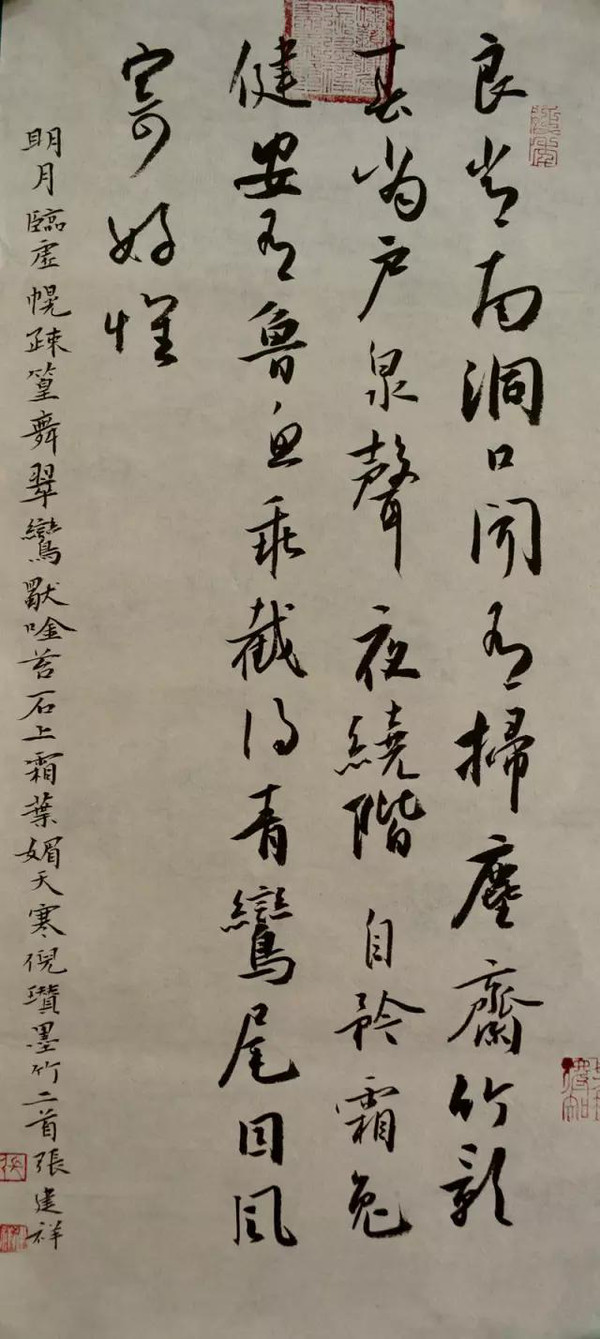 良常南洞口聞有掃塵齋竹影
春當戶泉聲夜繞階自矜霜兔
健安有魯魚乖截得青鸞尾因風
寄好懷
明月臨虛幌疎篁舞翠鸞默唫苔石上霜葉媚天寒倪瓚墨竹二首張建祥